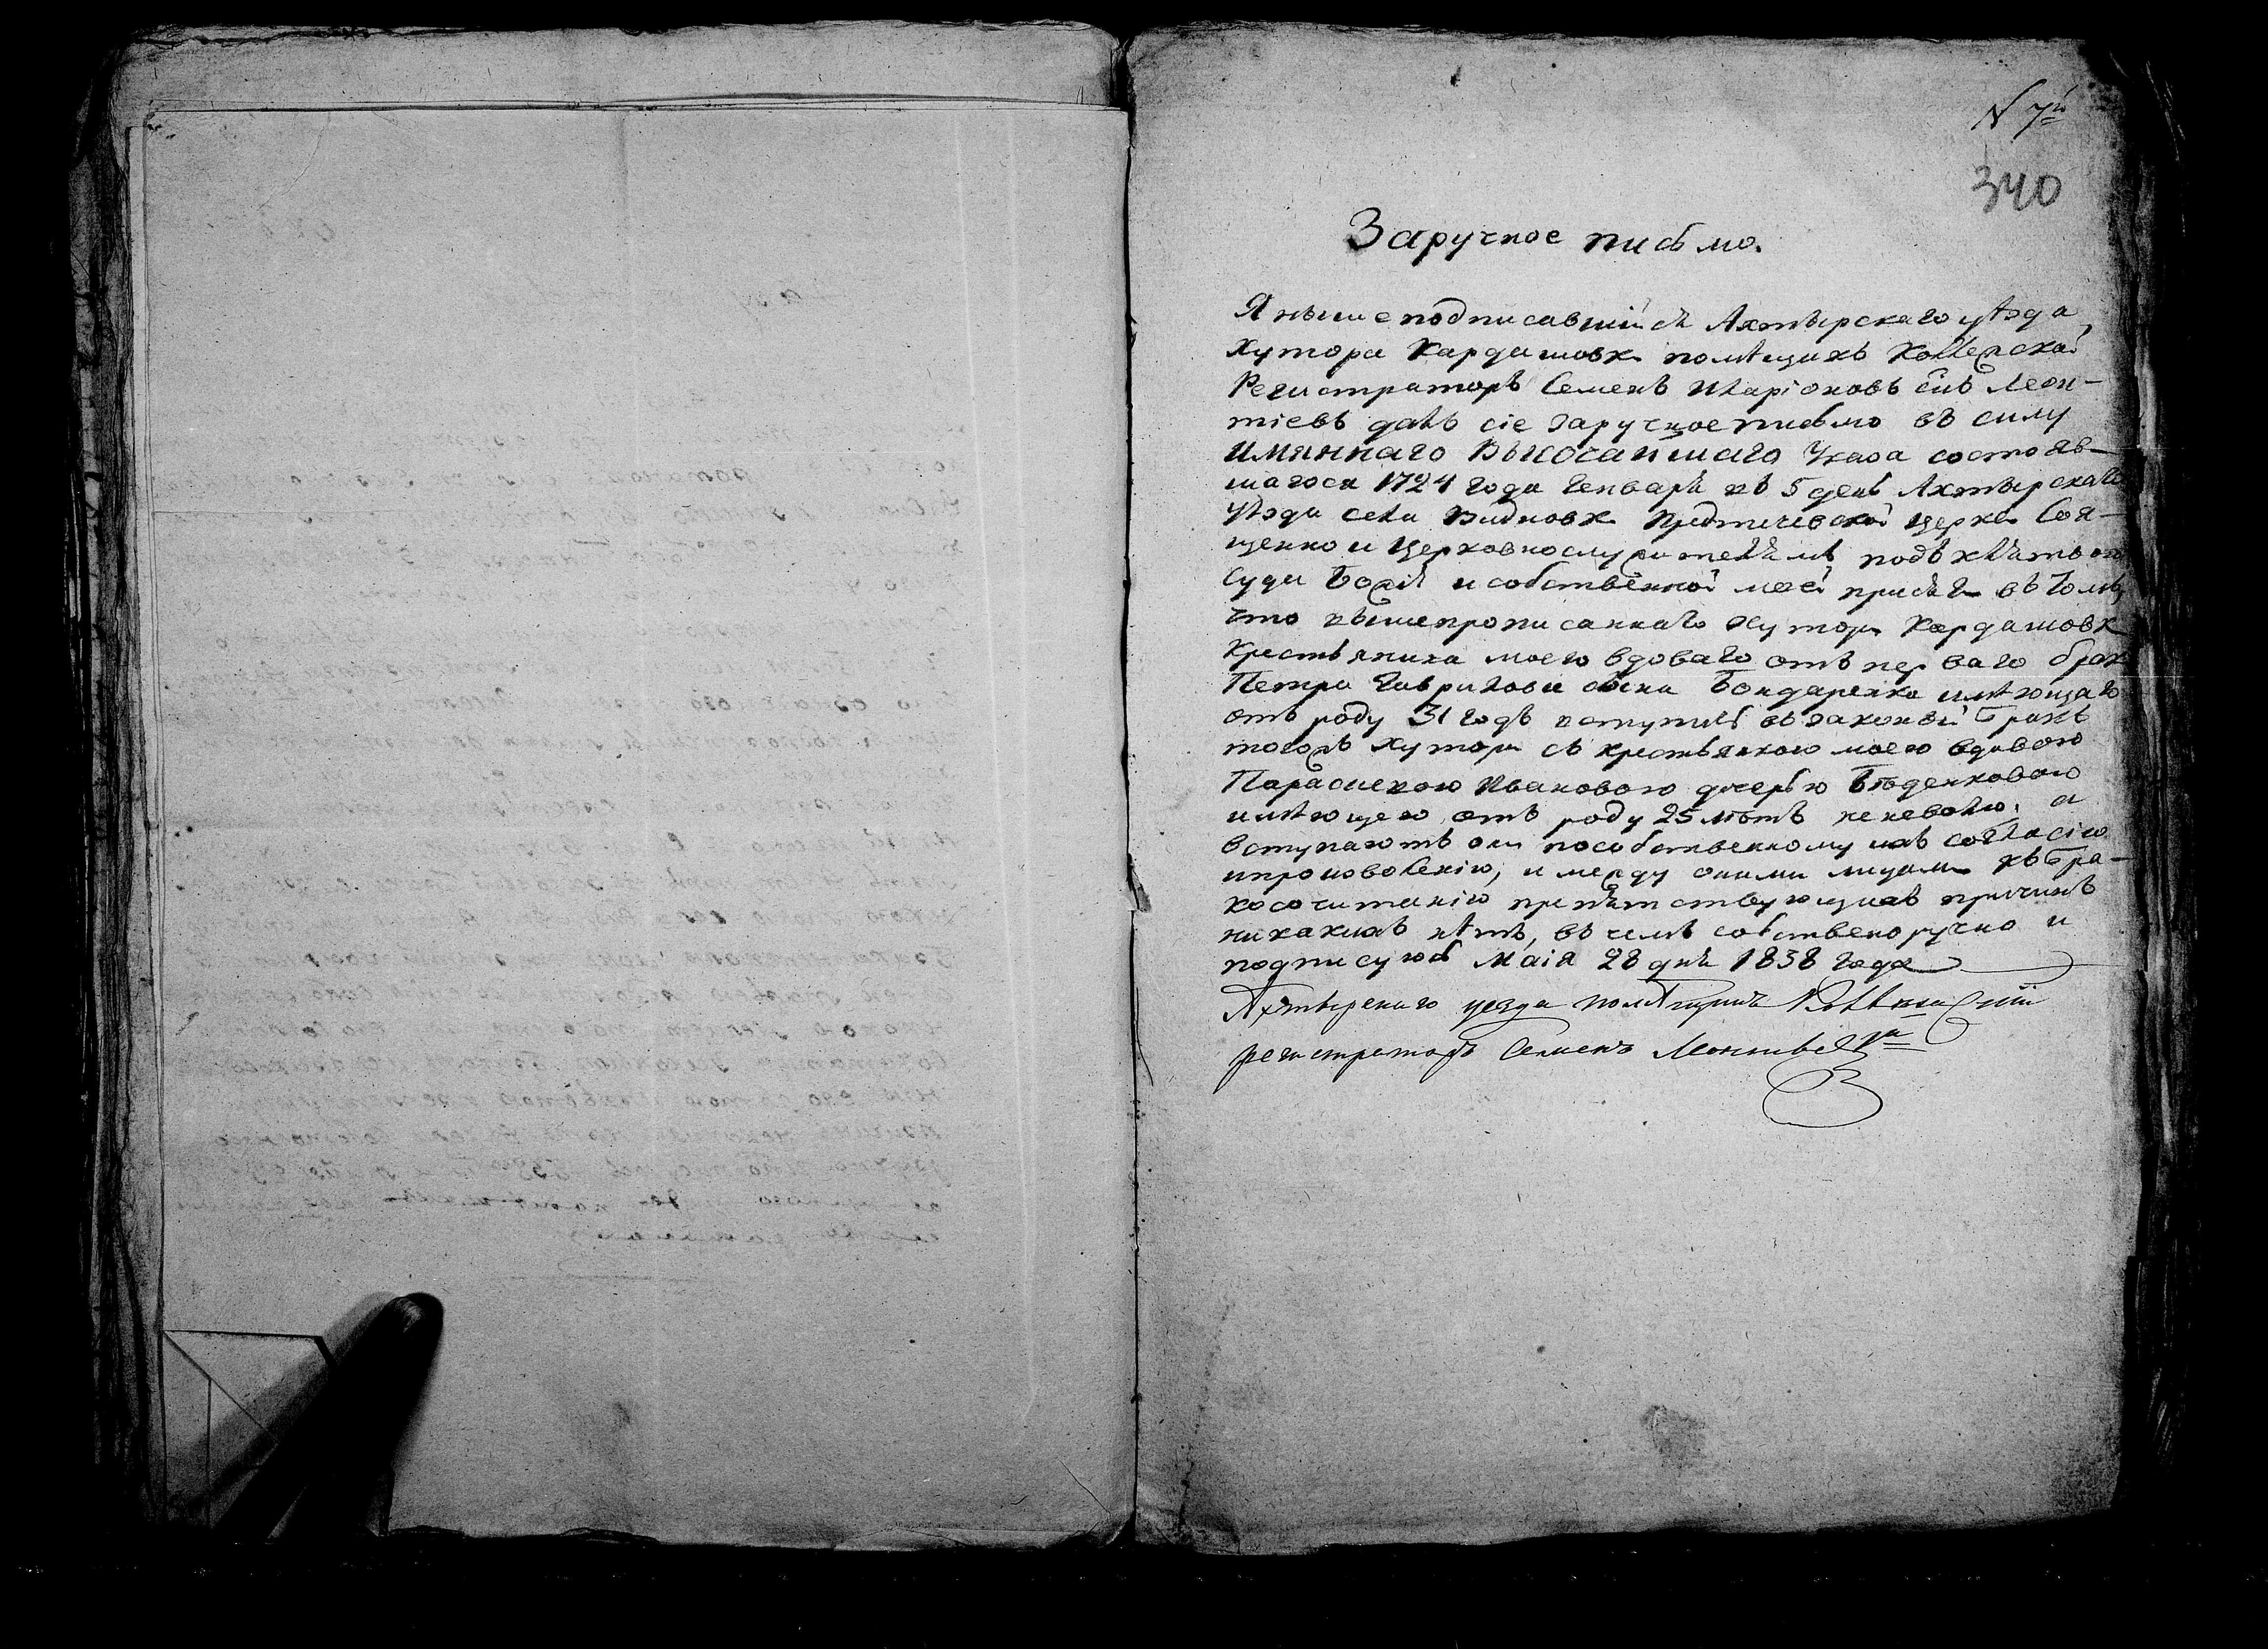 N 7й
340
Заручное письмо.
Я ниже подписавшійся Ахтырскаго уѣзда,
Хутора Кардашовки помѣщикъ Коллежской
Регистраторъ Семенъ Иларіоновъ сынъ Леон-
тіевъ далъ сіе заручное письмо въ силу
Имяннаго Высочайшаго Указа состояв-
шагося 1724 года Генваря въ 5 день Ахтырскаго
уѣзда села Предтечевской церкви Свя-
щенно и церковнослужителямъ подъ клятвою
Суда Божія и собственной моей присяги въ томъ,
что вышепрописаннаго Хутора Кардашовки
Крестьянина моего вдоваго отъ перваго брака
Петра Гаврилова сына Бондаренка имѣющаго
отъ роду 31 годъ вступить въ законный бракъ
тогожъ Хутора съ крестьянкою моею вдовою
Параскекою Ивановою дочерью
имѣющею отъ роду 25 лѣтъ неневолю, а
вступаютъ они пособственному ихъ согласію
ипроизволенію, и между оними лицами къ бра-
косочитанію препятствующихъ причинъ
никакихъ нѣтъ, въ чемъ собственоручно и
подписуюсь Маія 28 дня 1838 года
Ахтырскаго уезда помѣщикъ
регистраторъ Семенъ Леонтьевъ